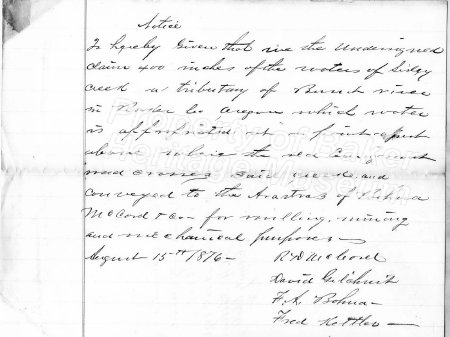 Notice
Is hereby Given that we the Undersigned
claim 400 inches of the waters of
creek a tributary of Burnt river
in Baker Co, Oregon which water
is appropriated at a point
above where the old Emigrant
road crosses said creek and
conveyed to the Arastras of
McCord & Co - for milling, mining
and mechanical purposes
August 15th 1876 - R D McCord
David Gilchrist
F. A. Bohna
Fred Kottler
Property of Baker